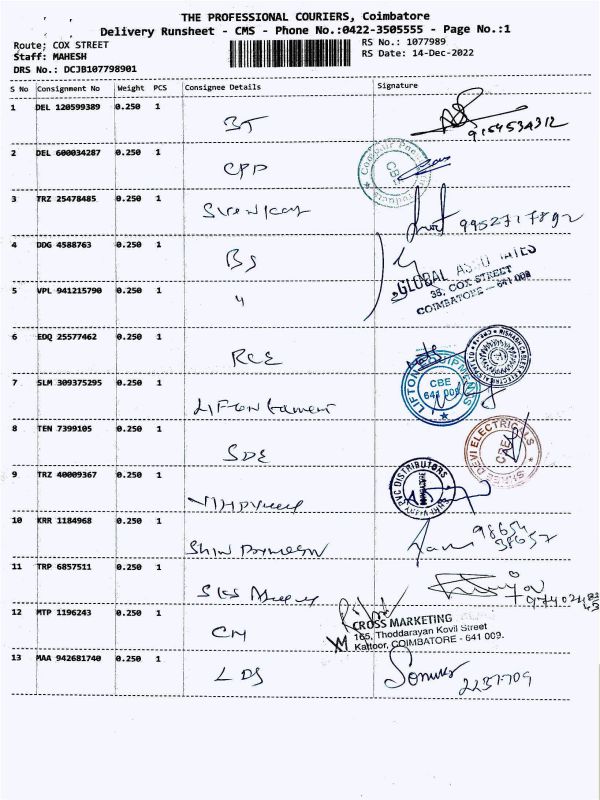 THE PROFESSIONAL COURIERS, Coimbatore
Delivery Runsheet - CMS - Phone No.:0422-3505555 - Page No.:1
Route; COX STREET RS No.: 1077989
Staff: MAHESH RS Date: 14-Dec-2022
DRS No.: DCJB107798901
S No Consignment No Weight PCS Consignee Details Signature
1 DEL 120599389 0.250 1 BT
2 DEL 600034287 0.250 1 CPP
CBE
3 TRZ 25478485 0.250 1 9952717892
4 DDG 4588763 0.250 1 BS
GLOBAL ASSOCIATES
38, COX STREET
COIMBATORE - 641 008
5 VPL 941215790 0.250 1 "
6 EDQ 25577462 0.250 1 RCE
7 SLM 309375295 0.250 1
LIFTON EQUIPMENTS
CBE
641 009
8 TEN 7399105 0.250 1 SDE
DEVI ELECTRICALS
CBE
9 TRZ 40009367 0.250 1
PVC DISTRIBUTORS
10 KRR 1184968 0.250 1
98654
38657
11 TRP 6857511 0.250 1
12 MTP 1196243 0.250 1 CM
CROSS MARKETING
165, Thoddarayan Kovil Street
Kattoor, COIMBATORE - 641 009.
13 MAA 942681740 0.250 1 LDS
2237709